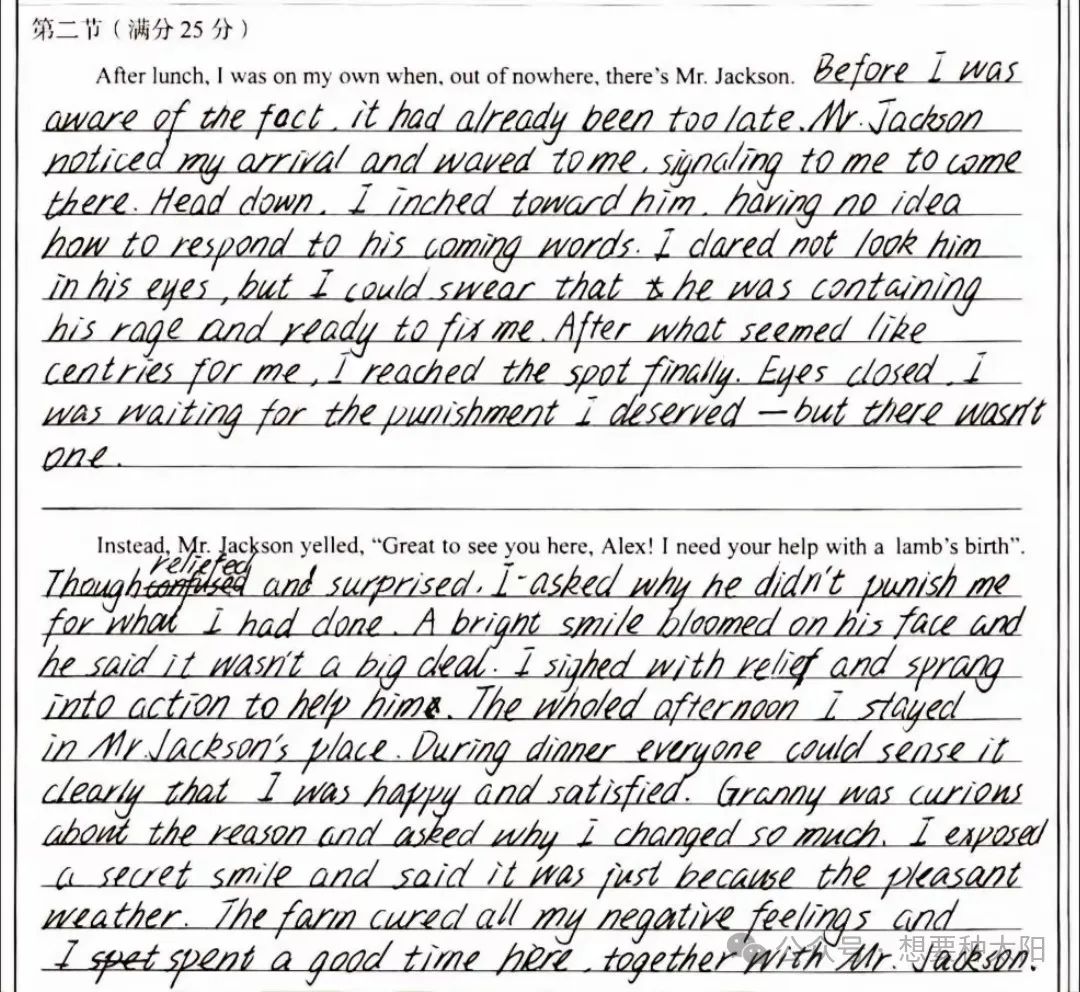 第二节（满分25分）
After lunch, I was on my own when, out of nowhere, there's Mr. Jackson. Before I was
aware of the fact, it had already been too late. Mr. Jackson
noticed my arrival and waved to me, signaling to me to come
there. Head down, I inched toward him, having no idea
how to respond to his coming words. I dared not look him
in his eyes, but I could swear that he was containing
his rage and ready to fix me. After what seemed like
centries for me, I reached the spot finally. Eyes closed, I
was waiting for the punishment I deserved — but there wasn't
one.
Instead, Mr. Jackson yelled, “Great to see you here, Alex! I need your help with a lamb's birth”.
reliefed
Though confused and surprised, I asked why he didn't punish me
for what I had done. A bright smile bloomed on his face and
he said it wasn't a big deal. I sighed with relief and sprang
into action to help him. The wholed afternoon I stayed
in Mr. Jackson's place. During dinner everyone could sense it
clearly that I was happy and satisfied. Granny was curions
about the reason and asked why I changed so much. I exposed
a secret smile and said it was just because the pleasant
weather. The farm cured all my negative feelings and
I spet spent a good time here, together with Mr. Jackson.
公众号 · 想要种太阳